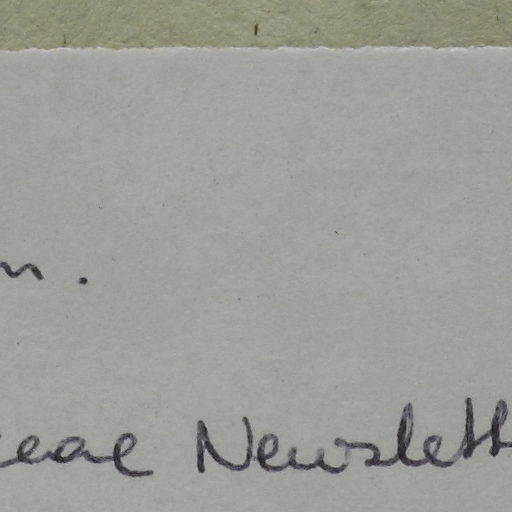 m.
ceae Newslett